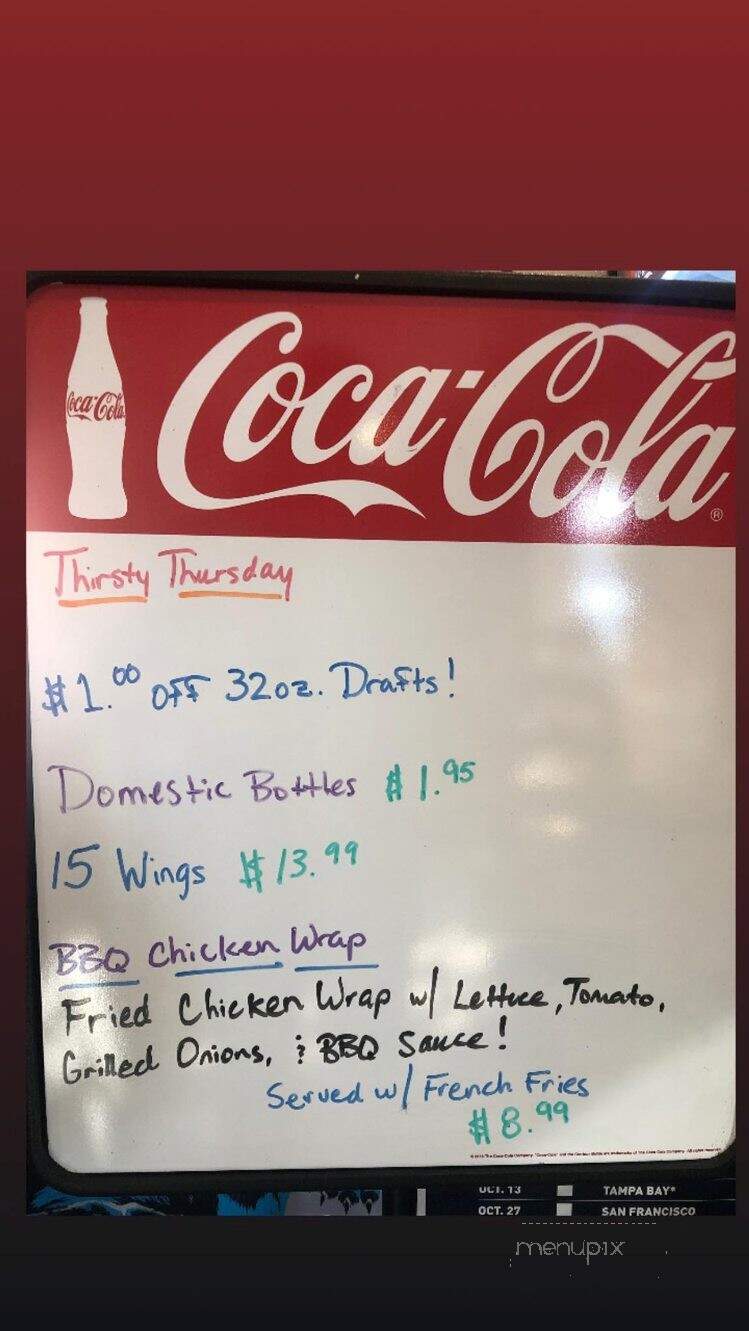 Coca-Cola
Coca-Cola®
Thirsty Thursday
$1.00 off 32oz. Drafts!
Domestic Bottles $1.95
15 Wings $13.99
BBQ Chicken Wrap
Fried Chicken Wrap w/ Lettuce, Tomato,
Grilled Onions, & BBQ Sauce!
Served w/ French Fries
$8.99
OCT. 13 TAMPA BAY*
OCT. 27 SAN FRANCISCO
menupix